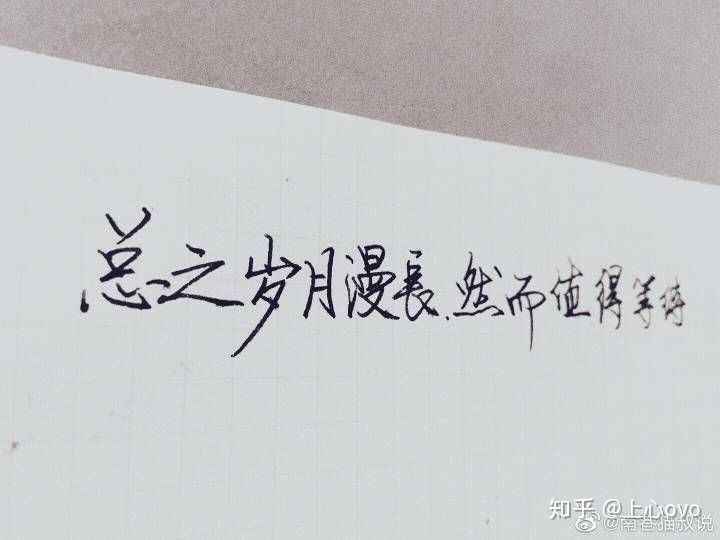 总之岁月漫長,然而值得等待
知乎 @上心ovo
@南巷猫叔说